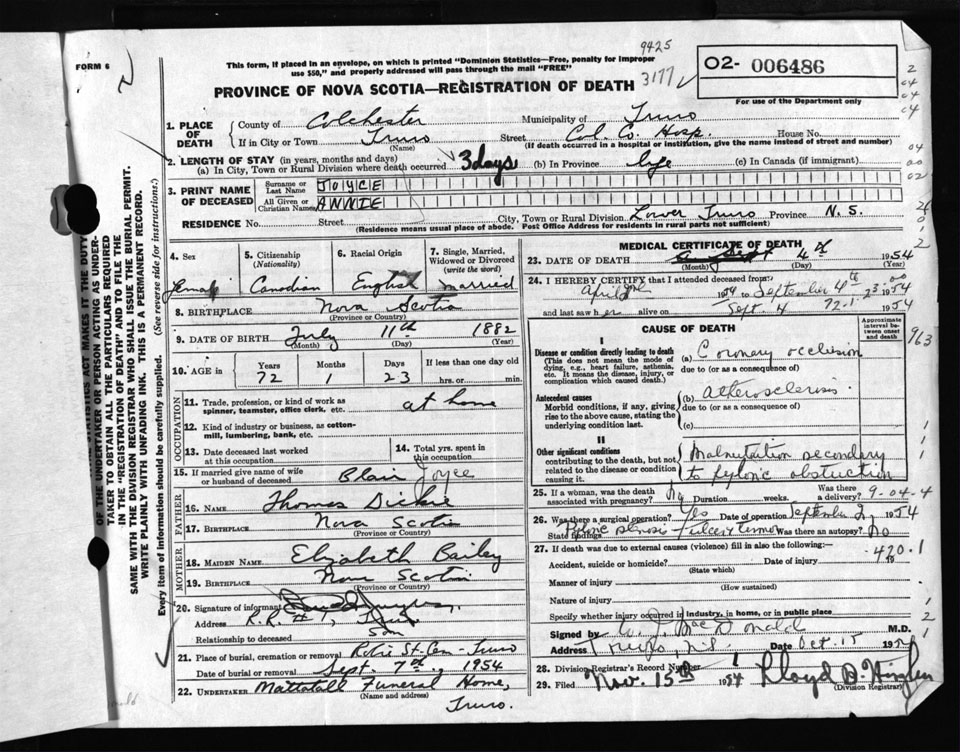 9425
FORM 6
This form, if placed in an envelope, on which is printed "Dominion Statistics—Free, penalty for improper
use $50," and properly addressed will pass through the mail "FREE"
3177
02- 006486
For use of the Department only
PROVINCE OF NOVA SCOTIA—REGISTRATION OF DEATH
1. PLACE OF DEATH
County of Colchester Municipality of Truro
If in City or Town Truro Street Col. Co. Hosp. House No.
(Name) (If death occurred in a hospital or institution, give the name instead of street and number)
2. LENGTH OF STAY (in years, months and days)
(a) In City, Town or Rural Division where death occurred 3 days (b) In Province life (c) In Canada (if immigrant)
3. PRINT NAME OF DECEASED
Surname or Last Name JOYCE
All Given or Christian Names ANNIE
RESIDENCE No. Street City, Town or Rural Division Lower Truro Province N.S.
(Residence means usual place of abode. Post Office Address for residents in rural parts not sufficient)
4. Sex Female
5. Citizenship (Nationality) Canadian
6. Racial Origin English
7. Single, Married, Widowed or Divorced (write the word) married
8. BIRTHPLACE Nova Scotia
(Province or Country)
9. DATE OF BIRTH July 11th 1882
(Month) (Day) (Year)
10. AGE in Years Months Days If less than one day old
72 1 23 hrs. or min.
OCCUPATION
11. Trade, profession, or kind of work as spinner, teamster, office clerk, etc. at home
12. Kind of industry or business, as cotton-mill, lumbering, bank, etc.
13. Date deceased last worked at this occupation
14. Total yrs. spent in this occupation
15. If married give name of wife or husband of deceased Blair Joyce
FATHER
16. NAME Thomas Dickie
17. BIRTHPLACE Nova Scotia
(Province or Country)
MOTHER
18. MAIDEN NAME Elizabeth Bailey
19. BIRTHPLACE Nova Scotia
(Province or Country)
20. Signature of informant
Address R.R. # 1, Truro
Relationship to deceased Son
21. Place of burial, cremation or removal Robie St. Cem- Truro
Date of burial or removal Sept. 7th, 1954
22. UNDERTAKER Mattatall Funeral Home,
(Name and address)
Truro.
MEDICAL CERTIFICATE OF DEATH
23. DATE OF DEATH Sept 4th 1954
(Month) (Day) (Year)
24. I HEREBY CERTIFY that I attended deceased from:
April 1954 to September 4th 1954
and last saw her alive on Sept. 4 1954
72.1.23
CAUSE OF DEATH
Approximate interval between onset and death
I
Disease or condition directly leading to death
(This does not mean the mode of dying, e.g., heart failure, asthenia, etc. It means the disease, injury, or complication which caused death.)
(a) Coronary occlusion
due to (or as consequence of)
963
Antecedent causes
Morbid conditions, if any, giving rise to the above cause, stating the underlying condition last.
(b) atherosclerosis
due to (or as consequence of)
(c)
II
Other significant conditions
contributing to the death, but not related to the disease or condition causing it.
Malnutrition secondary
to pyloric obstruction
25. If a woman, was the death associated with pregnancy? No Duration weeks. Was there a delivery?
9-04-4
26. Was there a surgical operation? Yes Date of operation September 2, 1954
State findings Pyloric stenosis Was there an autopsy? No
27. If death was due to external causes (violence) fill in also the following:—
420.1
Accident, suicide or homicide? Date of injury 19
(State which)
Manner of injury
(How sustained)
Nature of injury
Specify whether injury occurred in industry, in home, or in public place
Signed by MacDonald M.D.
Address Truro, N.S. Date Oct. 15 1954
28. Division Registrar's Record Number 1
29. Filed Nov. 15th 1954 Lloyd
(Division Registrar)
STATISTICS ACT MAKES IT THE DUTY
OF THE UNDERTAKER OR PERSON ACTING AS UNDER-
TAKER TO OBTAIN ALL THE PARTICULARS REQUIRED
IN THE "REGISTRATION OF DEATH" AND TO FILE THE
SAME WITH THE DIVISION REGISTRAR WHO SHALL ISSUE THE BURIAL PERMIT.
WRITE PLAINLY WITH UNFADING INK. THIS IS A PERMANENT RECORD.
Every item of information should be carefully supplied. (See reverse side for instructions.)